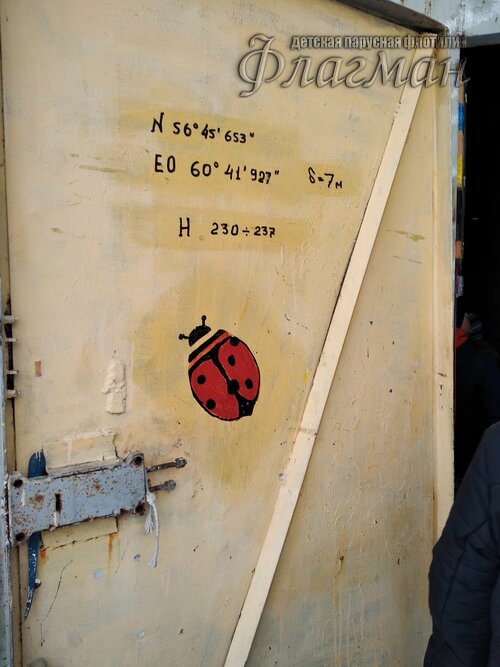 детская парусная флотилия
Флагман
N 56° 45' 653"
EO 60° 41' 927" δ=7м
H 230÷237